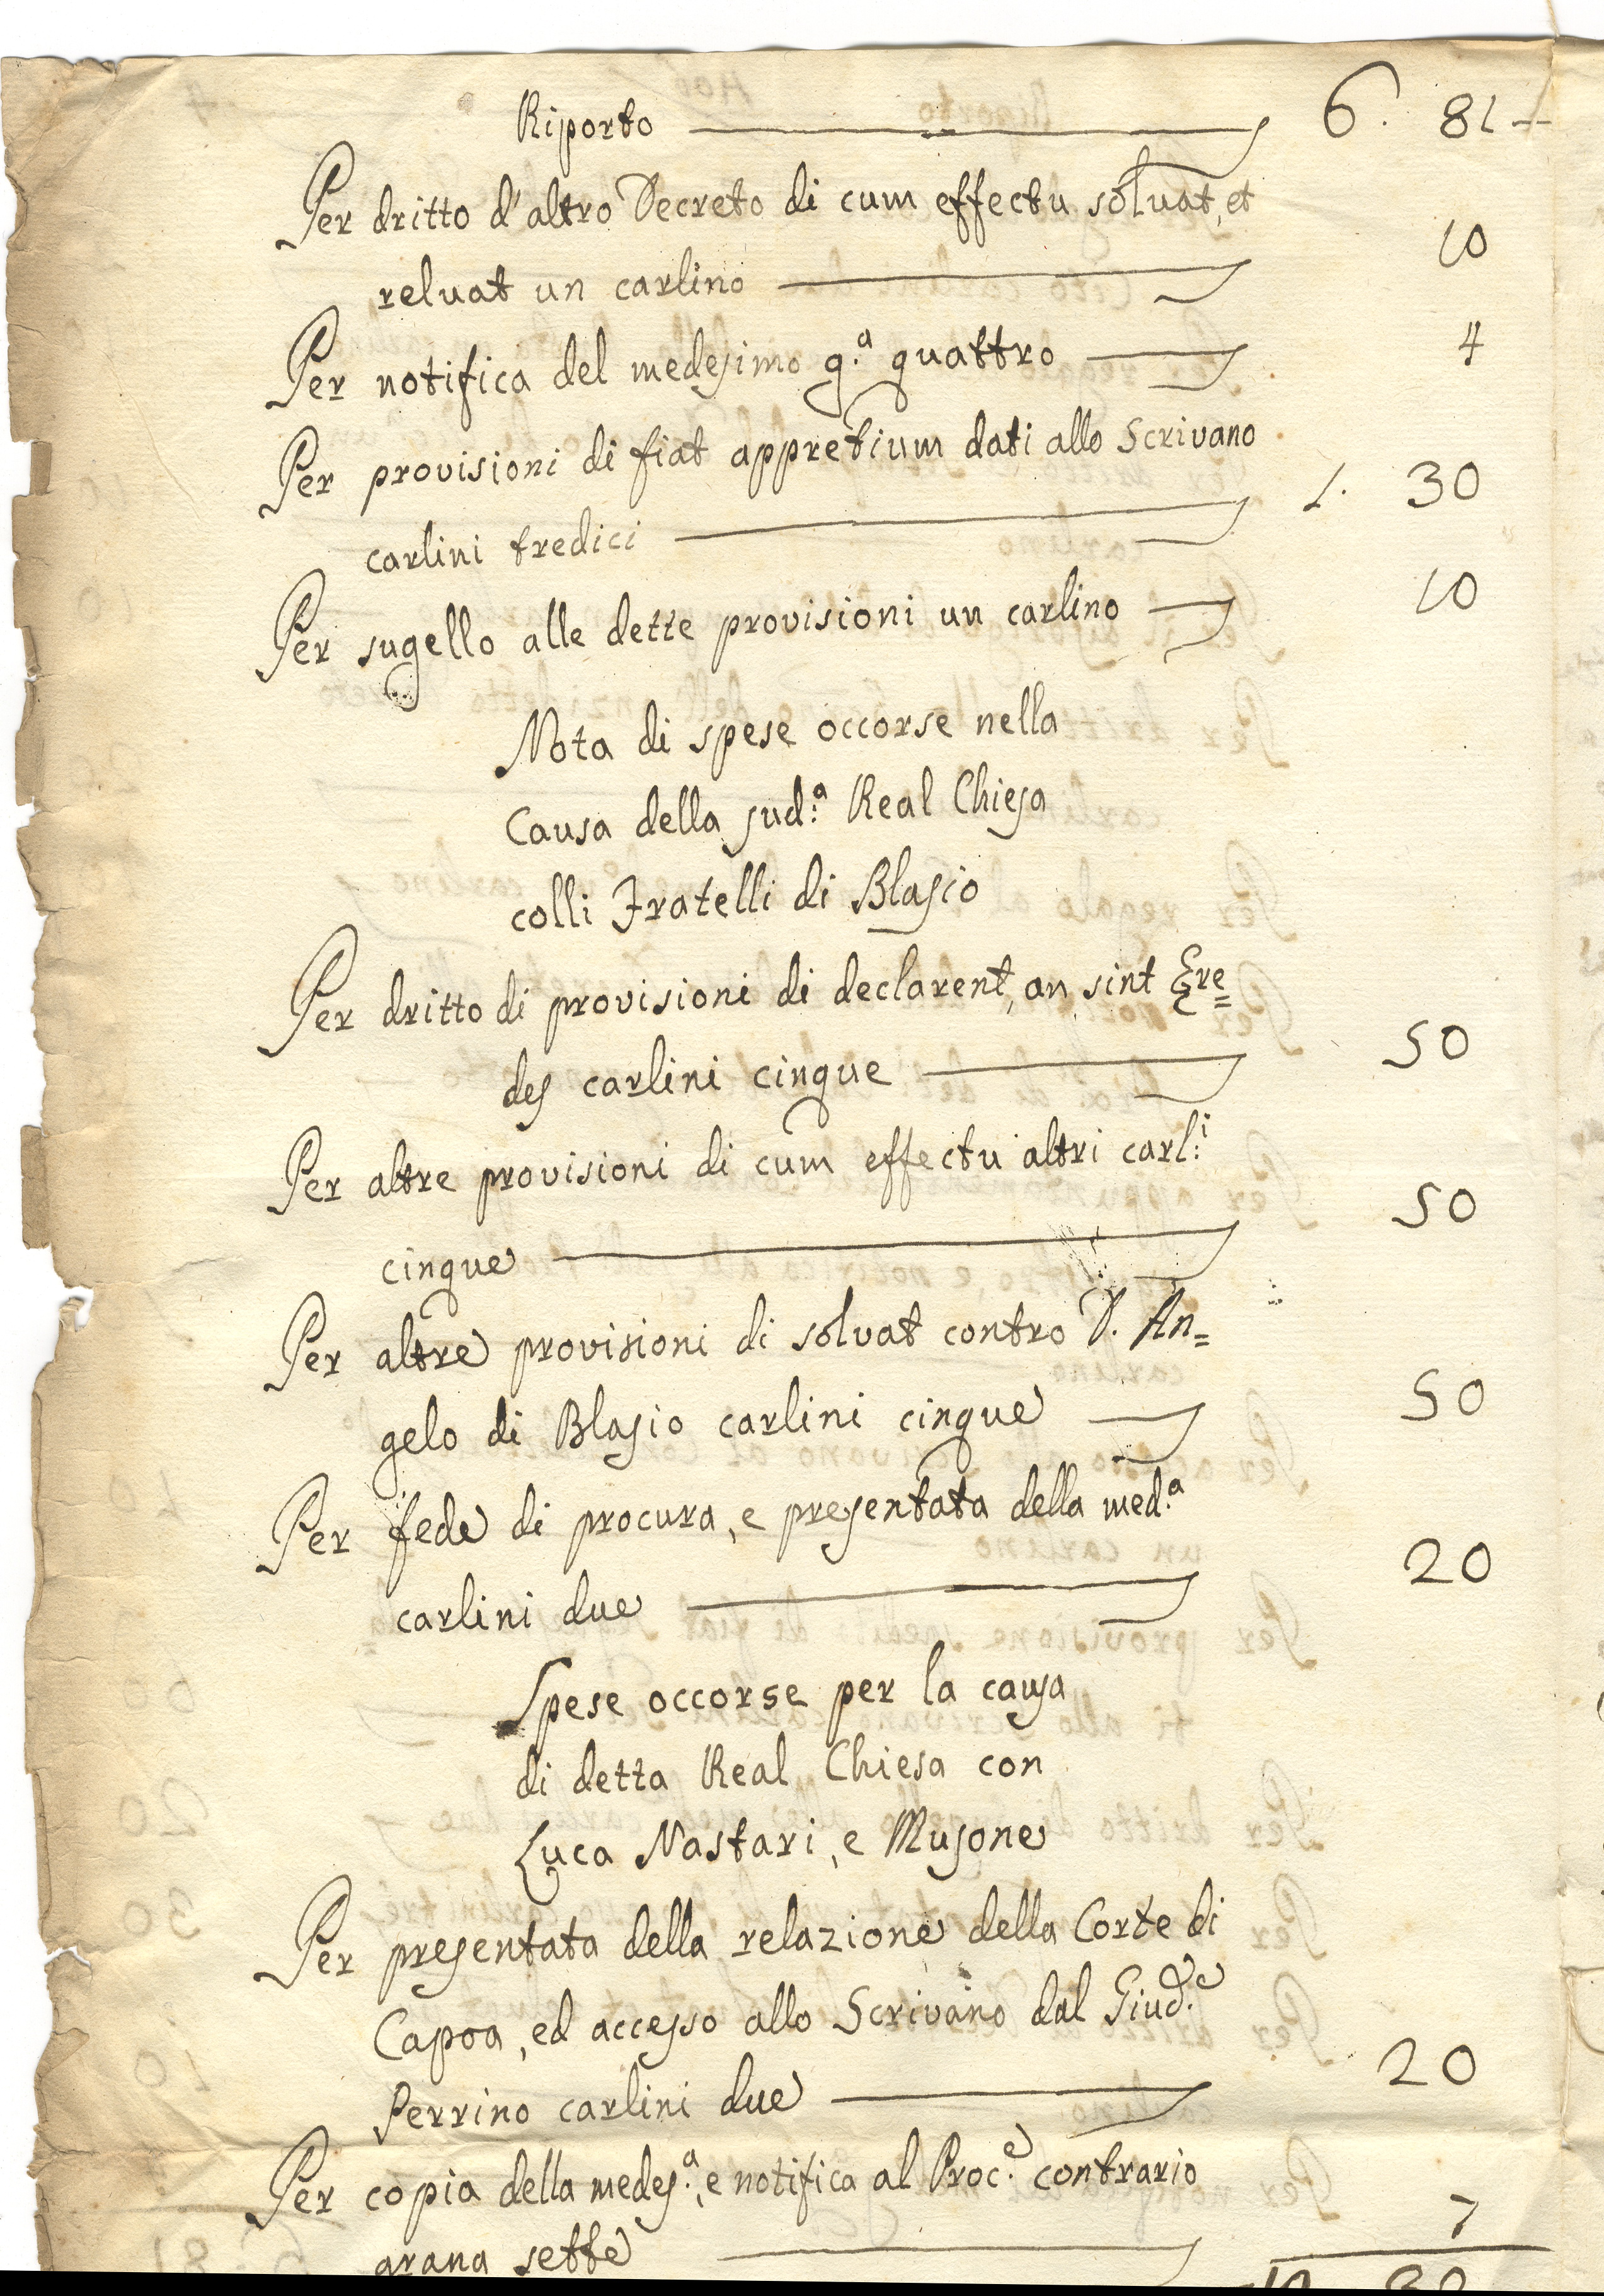 Riporto 6. 81
Per dritto d'altro Decreto di cum effectu solvat, et
reluat un carlino 10
Per notifica del medesimo g.ª quattro 4
Per provisioni di fiat appretium dati allo Scrivano
carlini tredici 1. 30
Per sugello alle dette provisioni un carlino 10
Nota di spese occorse nella
Causa della sud.ª Real Chiesa
colli Fratelli di Blasio
Per dritto di provisioni di declarent, an sint Ere=
des carlini cinque 50
Per altre provisioni di cum effectu altri carl.i
cinque 50
Per altre provisioni di solvat contro D. An=
gelo di Blasio carlini cinque 50
Per fede di procura, e presentata della med.ª
carlini due 20
Spese occorse per la causa
di detta Real Chiesa con
Luca Nastari, e Musone
Per presentata della relazione della Corte di
Capoa, ed accesso allo Scrivano dal Giud.e
Perrino carlini due 20
Per copia della medes.ª, e notifica al Proc.e contrario
grana sette 7